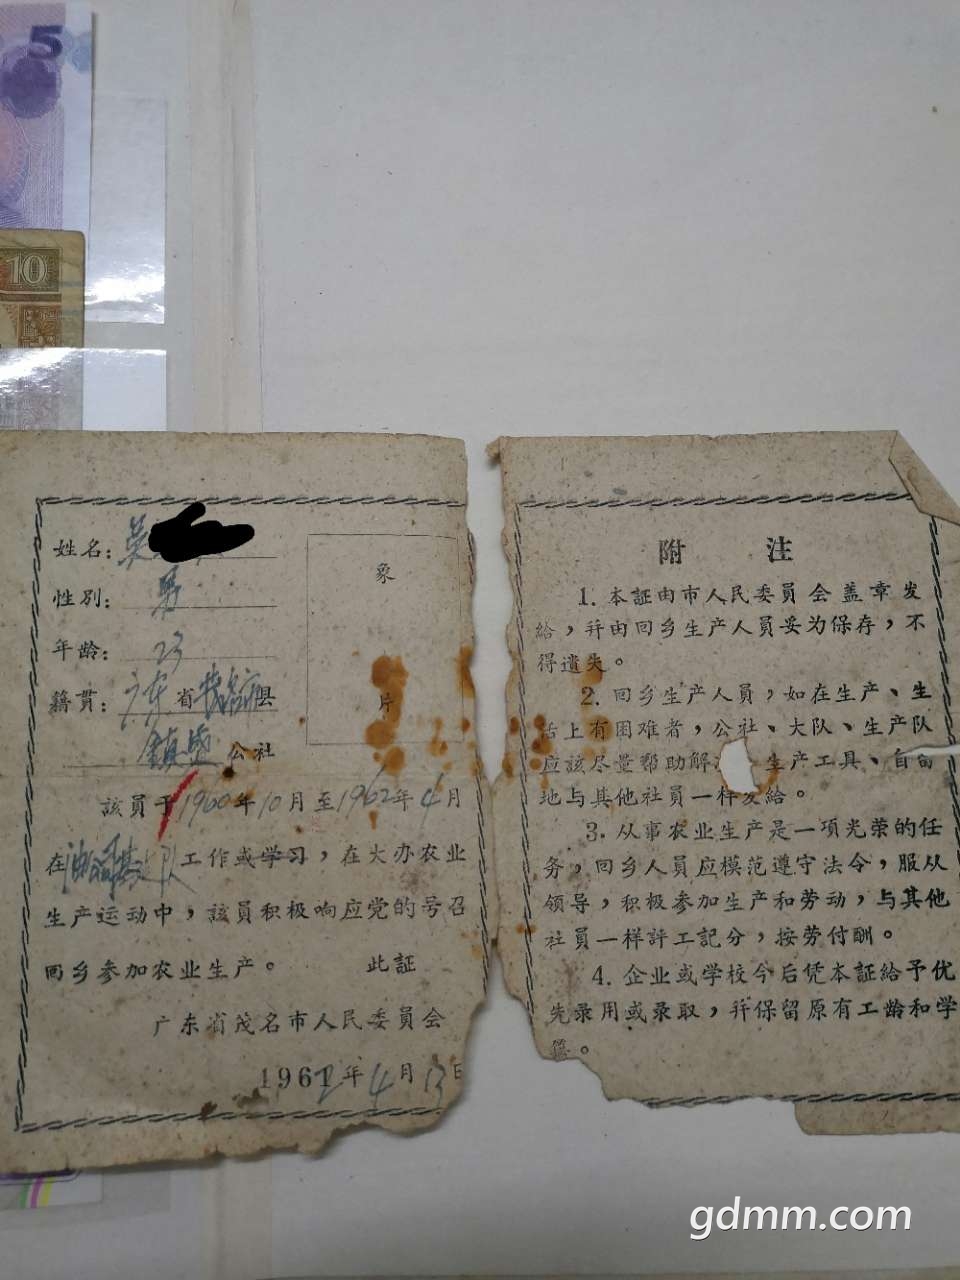 5
10
姓名：吴
性别：男
年龄：23
籍貫：广东省茂名市县
鎮盛公社
該員于1960年10月至1962年4月
在油公司基建队工作或学习，在大办农业
生产运动中，該員积极响应党的号召
回乡参加农业生产。 此証
广东省茂名市人民委員会
1962年4月13日
象
片
附 注
1. 本証由市人民委員会盖章发
給，幷由回乡生产人員妥为保存，不
得遺失。
2. 回乡生产人員，如在生产、生
活上有困难者，公社、大队、生产队
应該尽量帮助解 生产工具、自留
地与其他社員一样发給。
3. 从事农业生产是一項光荣的任
务，回乡人員应模范遵守法令，服从
领导，积极参加生产和劳动，与其他
社員一样評工記分，按劳付酬。
4. 企业或学校今后凭本証給予优
先录用或录取，幷保留原有工龄和学
籍。
gdmm.com